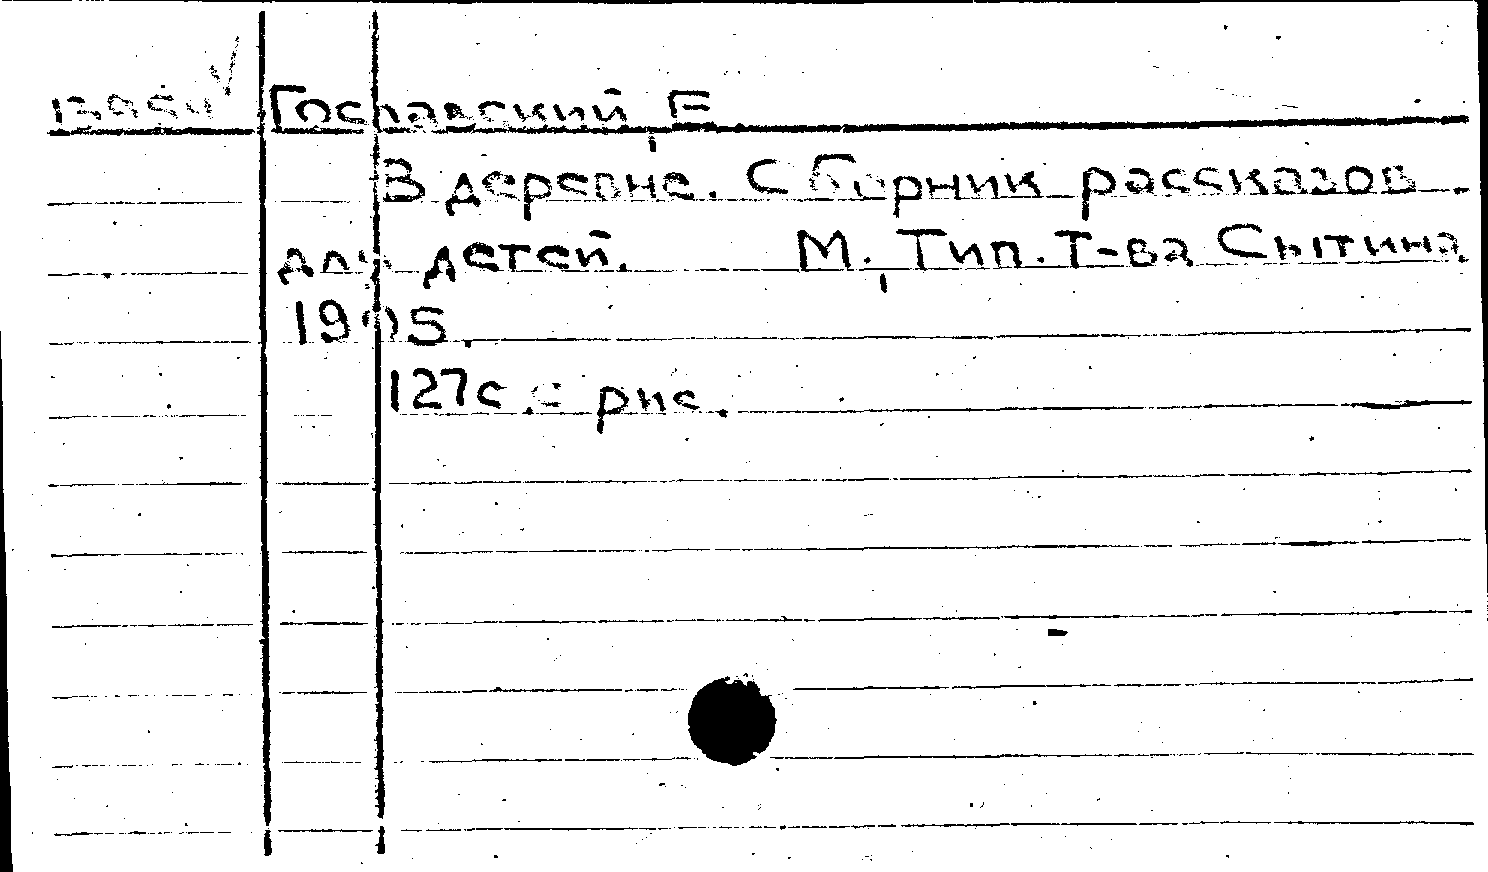 Гославский, Е
В деревне. Сборник рассказов
для детей. М., Тип. Т-ва Сытина.
1905.
127с. с рис.